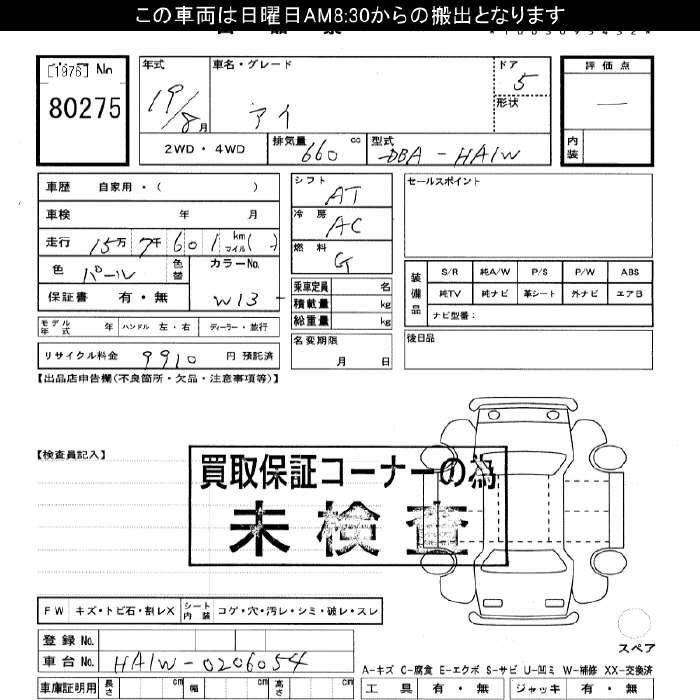 この車両は日曜日AM8:30からの搬出となります
[1976] No
80275
年式
19/8月
車名・グレード
アイ
ドア
5
形状
評価点
—
内装
2WD・4WD
排気量 660 cc
型式 DBA-HA1W
車歴 自家用・( )
車検 年 月
走行 15万7千601km マイル( )
色 パール
色替
カラーNo.
W13
保証書 有・無
モデル年式 年 ハンドル 左・右 ディーラー・並行
リサイクル料金 9910 円 預託済
シフト AT
冷房 AC
燃料 G
乗車定員 名
積載量 kg
総重量 kg
名変期限
月 日
セールスポイント
装備品
S/R 純A/W P/S P/W ABS
純TV 純ナビ 革シート 外ナビ エアB
ナビ型番:
後日品
【出品店申告欄(不良箇所・欠品・注意事項等)】
【検査員記入】
買取保証コーナーの為
未検査
FW キズ・トビ石・割レX シート内装 コゲ・穴・汚レ・シミ・破レ・スレ
登録 No.
車台 No. HA1W-0206054
車庫証明用 長さ cm 幅 cm 高さ cm
スペア
A-キズ C-腐食 E-エクボ S-サビ U-凹ミ W-補修 XX-交換済
工具 有・無 ジャッキ 有・無